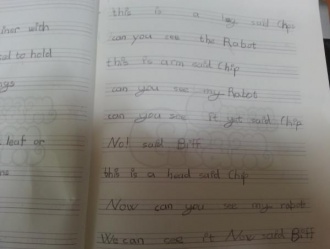 ner with
to hold
gs
leaf or
this is a leg said Chip
can you see the Robot
this is arm said Chip
can you see my Robot
can you see it yet said Chip
No! said Biff
this is a hand said Chip
Now can you see my robot
We can see it Now said Biff